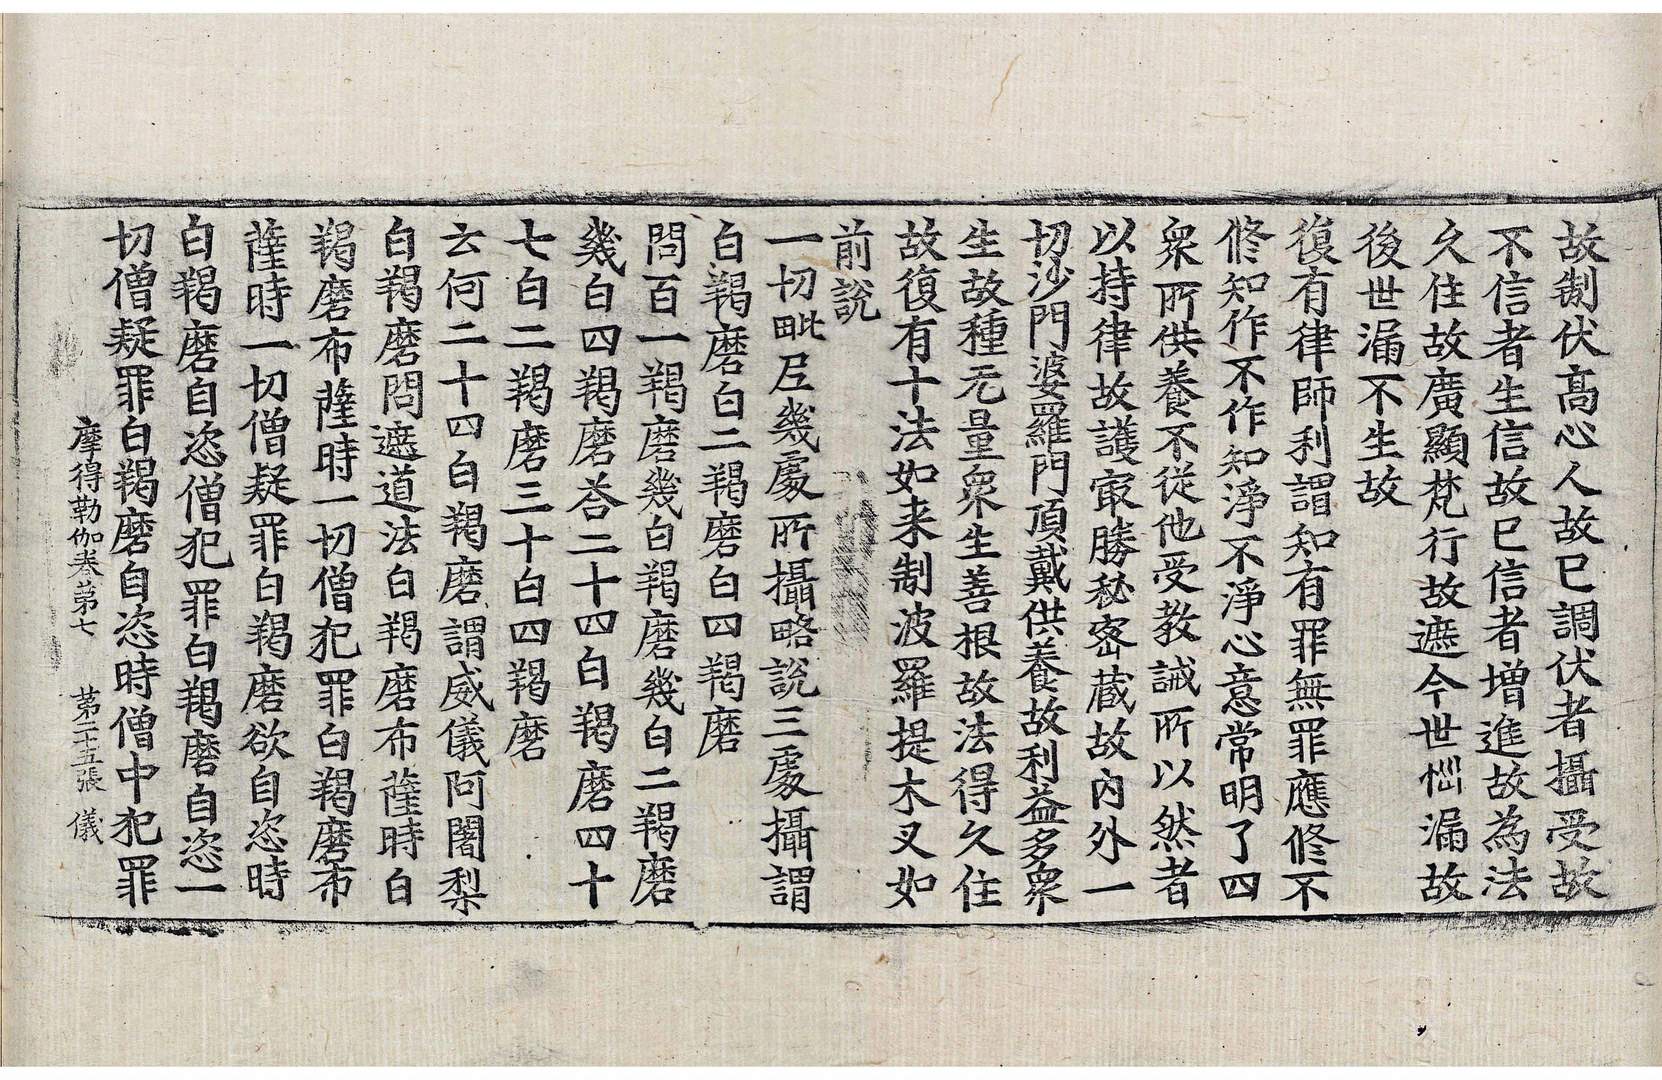 故制伏高心人故已調伏者攝受故
不信者生信故已信者增進故為法
久住故廣顯梵行故遮今世惱漏故
後世漏不生故
復有律師利謂知有罪無罪應修不
修知作不作知淨不淨心意常明了四
衆所供養不從他受教誡所以然者
以持律故護㝡勝秘密蔵故内外一
切沙門婆羅門頂戴供養故利益多衆
生故種无量衆生善根故法得久住
故復有十法如来制波羅提木叉如
前説
一切毗尼幾處所攝略說三處攝謂
白羯磨白二羯磨白四羯磨
問百一羯磨幾白羯磨幾白二羯磨
幾白四羯磨荅二十四白羯磨四十
七白二羯磨三十白四羯磨
云何二十四白羯磨謂威儀阿闍梨
白羯磨問遮道法白羯磨布薩時白
羯磨布薩時一切僧犯罪白羯磨布
薩時一切僧疑罪白羯磨欲自恣時
白羯磨自恣僧犯罪白羯磨自恣一
切僧疑罪白羯磨自恣時僧中犯罪
摩得勒伽卷第七 第二十五張 儀